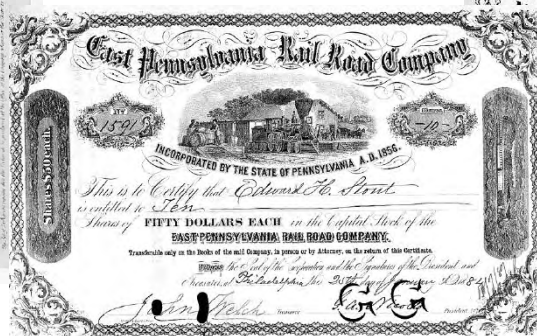 East Pennsylvania Rail Road Company
1591
10
INCORPORATED BY THE STATE OF PENNSYLVANIA A.D. 1856.
Shares $50 each.
This is to Certify that Edward H. Stout
is entitled to Ten
Shares of FIFTY DOLLARS EACH in the Capital Stock of the
EAST PENNSYLVANIA RAIL ROAD COMPANY.
Transferable only on the Books of the said Company, in person or by Attorney, on the return of this Certificate.
Witness the Seal of the Corporation and the Signatures of the President and
Treasurer, at Philadelphia the 25th day of A.D. 1884
John Welch Treasurer President